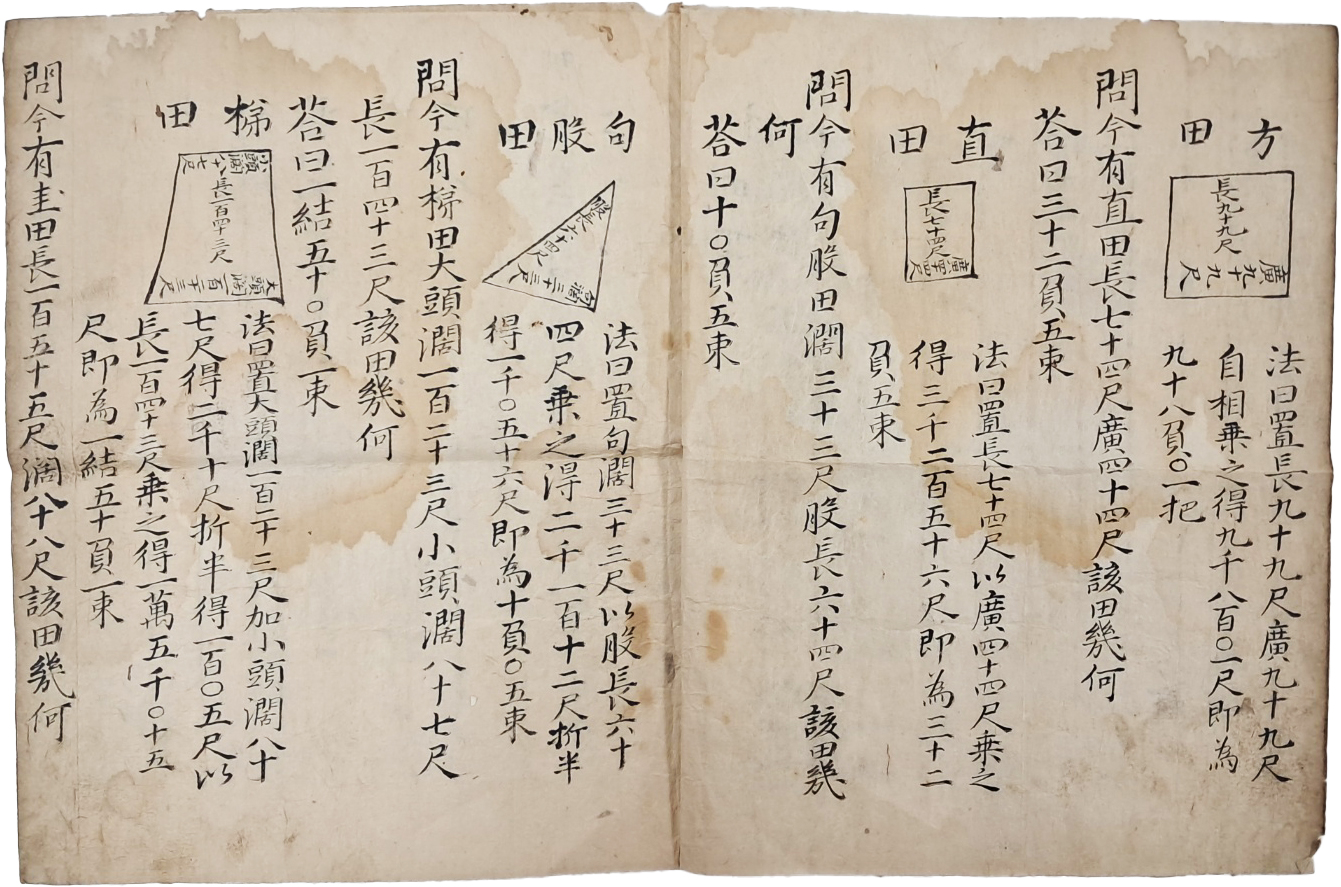 方
田
長九十九尺
廣九十九尺
法曰置長九十九尺廣九十九尺
自相乗之得九千八百〇一尺即為
九十八負〇一把
問今有直田長七十四尺廣四十四尺該田幾何
荅曰三十二負五束
直
田
長七十四尺
廣四十四尺
法曰置長七十四尺以廣四十四尺乗之
得三千二百五十六尺即為三十二
負五束
問今有句股田濶三十三尺股長六十四尺該田幾
何
荅曰十〇負五束
句
股
田
股長六十四尺
句濶三十三尺
法曰置句濶三十三尺以股長六十
四尺乗之得二千一百十二尺折半
得一千〇五十六尺即為十負〇五束
問今有梯田大頭濶一百二十三尺小頭濶八十七尺
長一百四十三尺該田幾何
荅曰一結五十〇負一束
梯
田
小頭濶八十七尺
長一百四十三尺
大頭濶一百二十三尺
法曰置大頭濶一百二十三尺加小頭濶八十
七尺得二千十尺折半得一百〇五尺以
長一百四十三尺乗之得一萬五千〇十五
尺即為一結五十負一束
問今有圭田長一百五十五尺濶八十八尺該田幾何